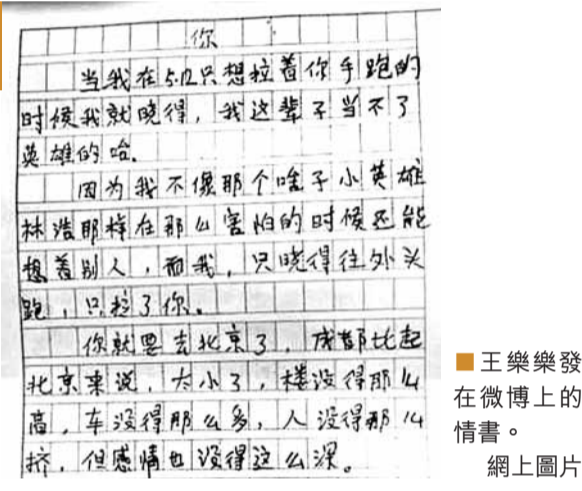 你
当我在5.12只想拉着你手跑的
时候我就晓得，我这辈子当不了
英雄的哈.
因为我不像那个啥子小英雄
林浩那样在那么害怕的时候还能
想着别人，而我，只晓得往外头
跑，只拉了你。
你就要去北京了，成都比起
北京来说，太小了，楼没得那么
高，车没得那么多，人没得那么
挤，但感情也没得这么深。
■王樂樂發
在微博上的
情書。
網上圖片